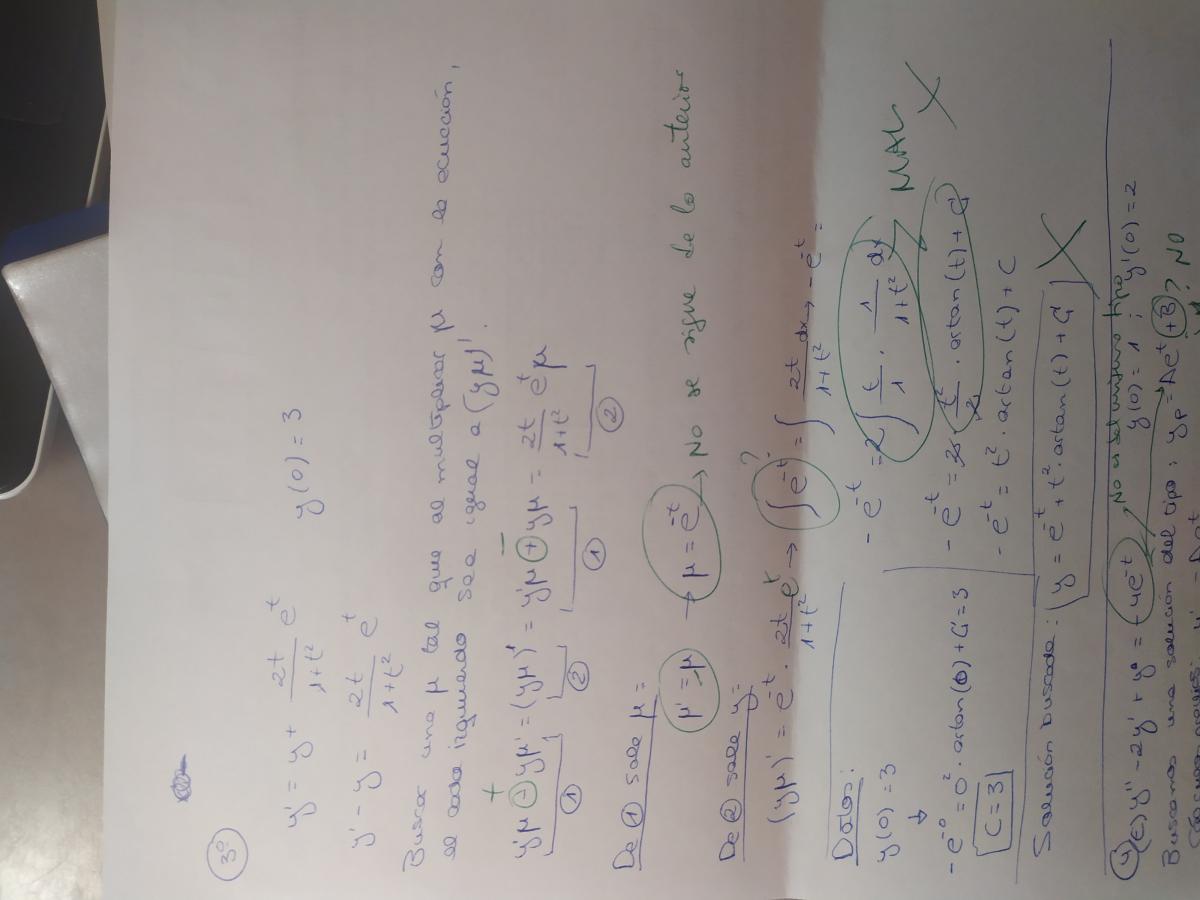 3º
y' = y + 2t/(1+t²) e^t        y(0) = 3
y' - y = 2t/(1+t²) e^t
Buscar una μ tal que al multiplicar μ con la ecuación,
el lado izquierdo sea igual a (yμ)'.
+
y'μ - yμ' = (yμ)' = y'μ + yμ = 2t/(1+t²) e^t μ
-
① ② ① ②
De ① sale μ =
μ' = μ → μ = e^-t → No se sigue de lo anterior
De ② sale y =
(yμ)' = e^-t · 2t/(1+t²) e^t → ∫ e^-t = ∫ 2t/(1+t²) dx → -e^-t =
?
Datos:
y(0) = 3
↓
-e^-0 = 0² · artan(0) + C = 3
C = 3
-e^-t = 2 ∫ t/1 · 1/(1+t²) dx
MAL
-e^-t = 2 t²/2 · artan(t) + C
-e^-t = t² · artan(t) + C
Solución buscada: y = e^-t + t² · artan(t) + C
No es del mismo tipo
4 y'' - 2y' + y = -4e^-t        y(0) = 1 ; y'(0) = 2
Buscamos una solución del tipo: yp = Ae^t + B ? NO